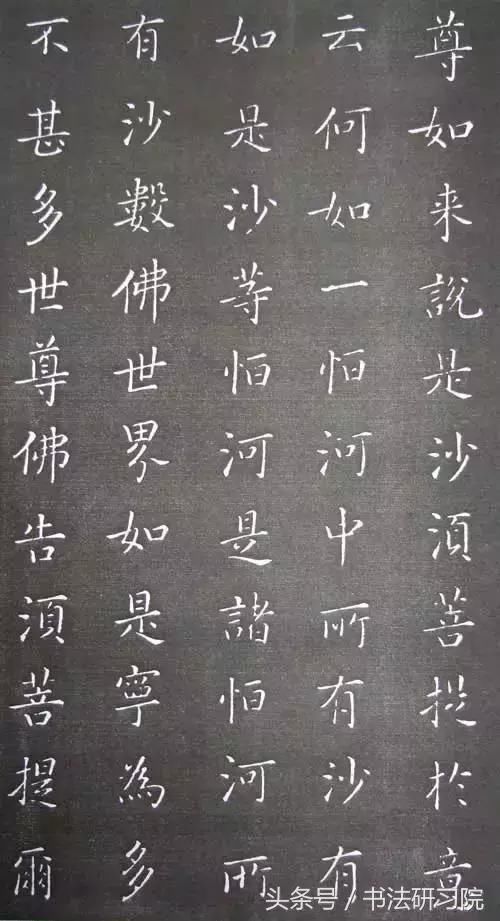 尊如来說是沙湏菩提於意
云何如一怕河中所有沙有
如是沙等怕河是諸怕河所
有沙數佛世界如是寧為多
不甚多世尊佛告湏菩提爾
头条号／书法研习院